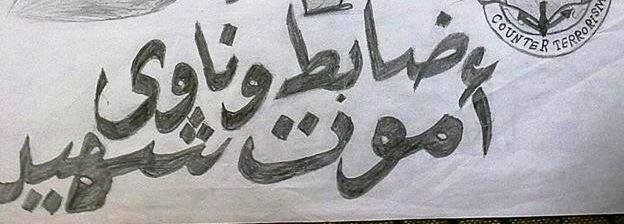 ضابط وناوى
أموت شهيد
COUNTER TERRORISM